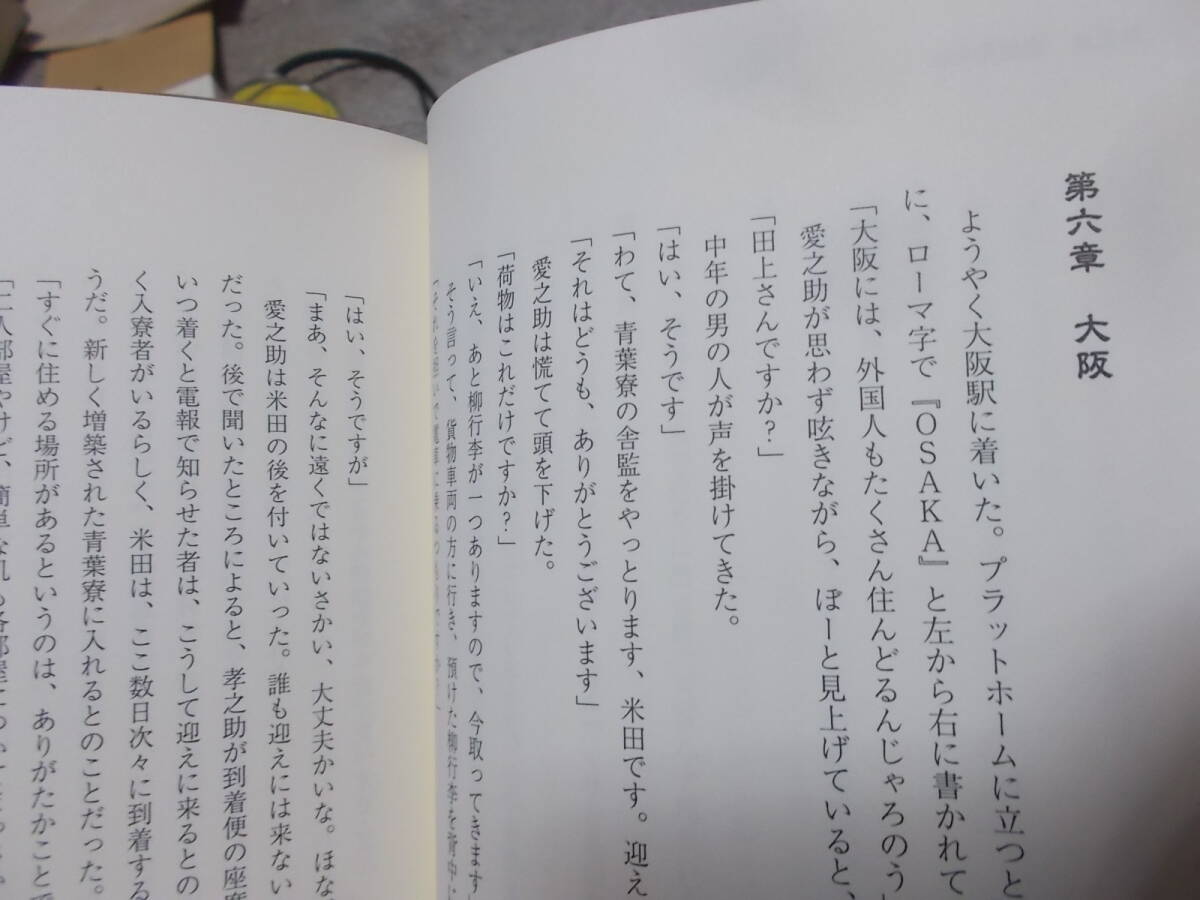 第六章　大阪
ようやく大阪駅に着いた。プラットホームに立つと
に、ローマ字で『ＯＳＡＫＡ』と左から右に書かれて
「大阪には、外国人もたくさん住んどるんじゃろのう」
愛之助が思わず呟きながら、ぼーと見上げていると、
「田上さんですか？」
中年の男の人が声を掛けてきた。
「はい、そうです」
「わて、青葉寮の舎監をやっとります、米田です。迎え
「それはどうも、ありがとうございます」
愛之助は慌てて頭を下げた。
「荷物はこれだけですか？」
「いえ、あと柳行李が一つありますので、今取ってきます」
そう言って、貨物車両の方に行き、預けた柳行李を背中に
「それを担いで電車に乗るつもりですか？」
「はい、そうですが」
「まあ、そんなに遠くではないさかい、大丈夫かいな。ほな
愛之助は米田の後を付いていった。誰も迎えには来ない
だった。後で聞いたところによると、孝之助が到着便の座席
いつ着くと電報で知らせた者は、こうして迎えに来るとの
く入寮者がいるらしく、米田は、ここ数日次々に到着する
うだ。新しく増築された青葉寮に入れるとのことだった。
「すぐに住める場所があるというのは、ありがたかことで
「二人部屋やけど、簡単な机も各部屋に